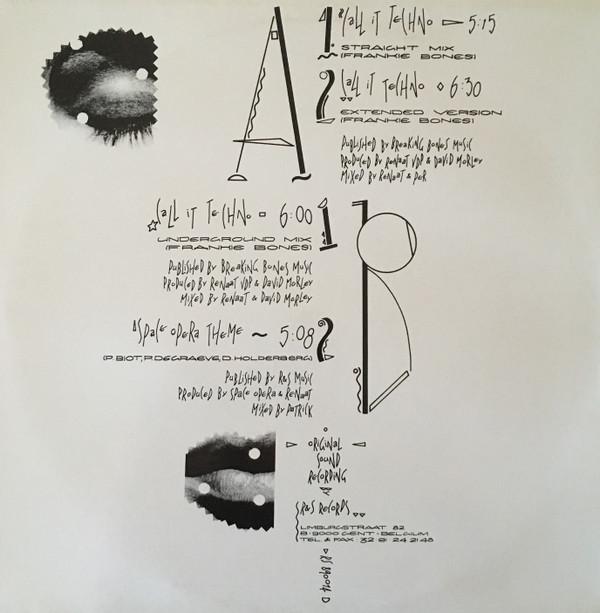 A
1 CALL IT TECHNO 5:15
STRAIGHT MIX
(FRANKIE BONES)
2 CALL IT TECHNO 6:30
EXTENDED VERSION
(FRANKIE BONES)
PUBLISHED BY BREAKING BONES MUSIC
PRODUCED BY RENAAT VDP & DAVID MORLEY
MIXED BY RENAAT &
B
CALL IT TECHNO 6:00 1
UNDERGROUND MIX
(FRANKIE BONES)
PUBLISHED BY BREAKING BONES MUSIC
PRODUCED BY RENAAT VDP & DAVID MORLEY
MIXED BY RENAAT & DAVID MORLEY
SPACE OPERA THEME ~ 5:08 2
(P. BIOT, P. DEGRAEVE, D. HOLDERBERG)
PUBLISHED BY R&S MUSIC
PRODUCED BY SPACE OPERA & RENAAT
MIXED BY PATRICK
ORIGINAL
SOUND
RECORDING
R&S RECORDS
LIMBURGSTRAAT 82
B-9000 GENT - BELGIUM
TEL. & FAX : 32 91 24 21 48
RS 89014 D